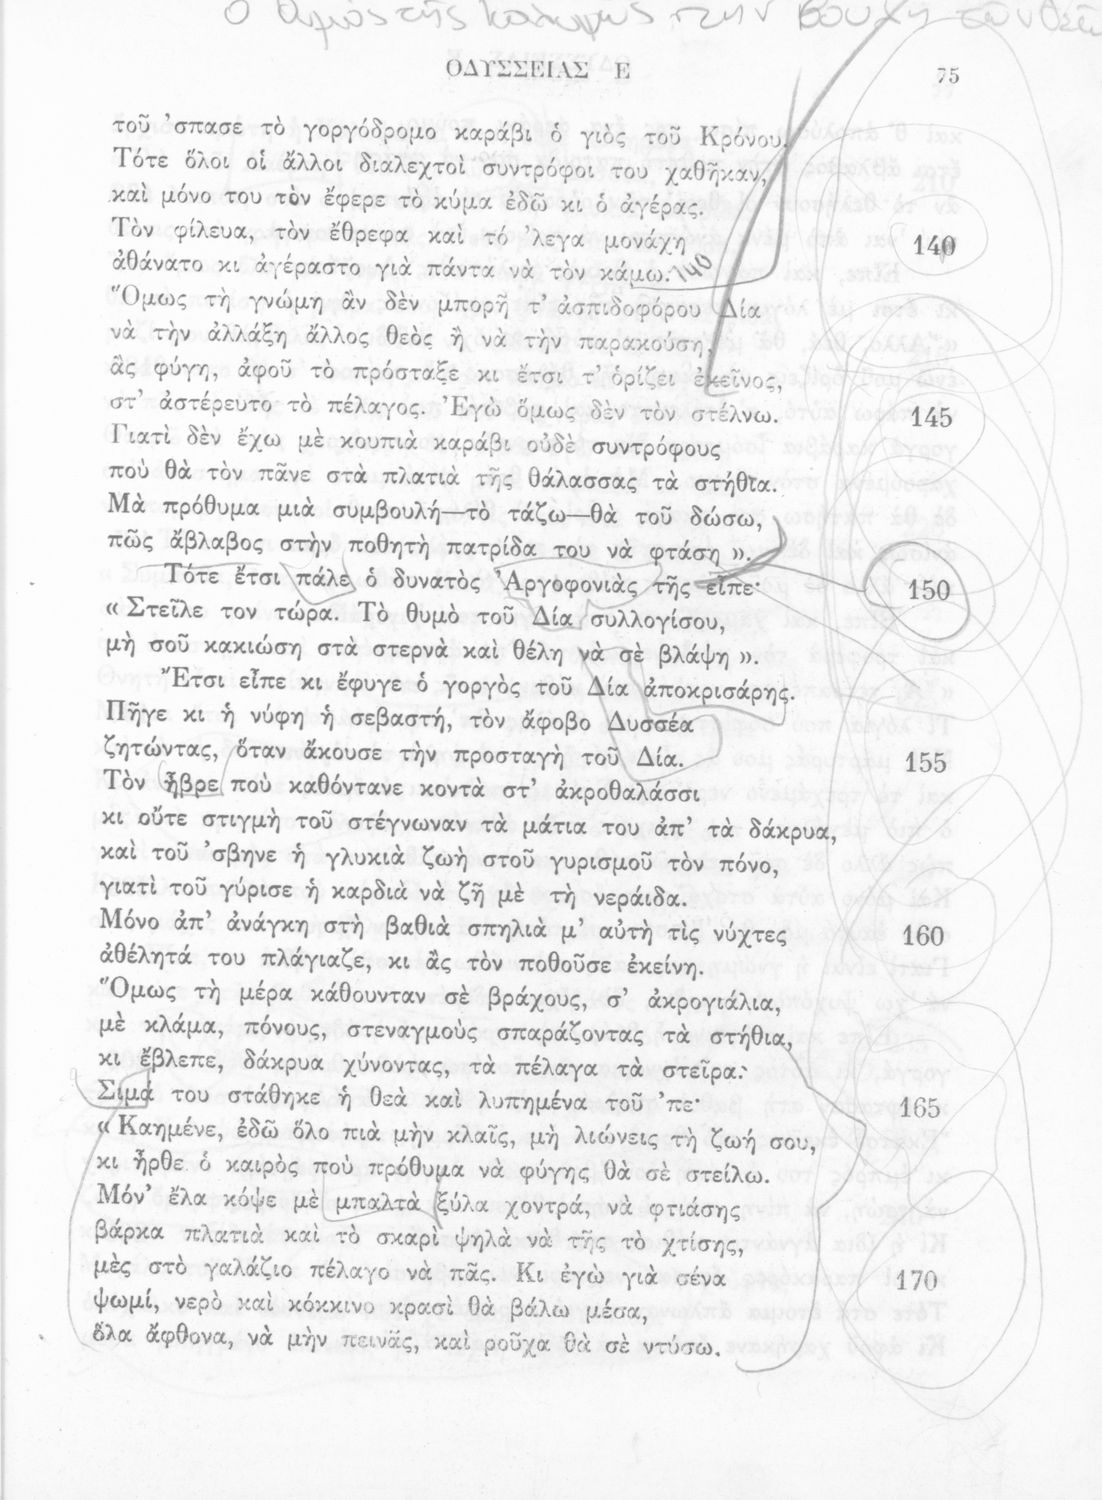 Ο θυμός της Καλυψώς στην βουλή των θεών
ΟΔΥΣΣΕΙΑΣ Ε 75
τοῦ 'σπασε τὸ γοργόδρομο καράβι ὁ γιὸς τοῦ Κρόνου.
Τότε ὅλοι οἱ ἄλλοι διαλεχτοὶ συντρόφοι του χαθῆκαν,
καὶ μόνο του τὸν ἔφερε τὸ κύμα ἐδῶ κι ὁ ἀγέρας.
Τὸν φίλευα, τὸν ἔθρεφα καὶ τό 'λεγα μονάχη 140
ἀθάνατο κι ἀγέραστο γιὰ πάντα νὰ τὸν κάμω. 140
Ὅμως τὴ γνώμη ἂν δὲν μπορῇ τ' ἀσπιδοφόρου Δία
νὰ τὴν ἀλλάξη ἄλλος θεὸς ἢ νὰ τὴν παρακούση,
ἂς φύγη, ἀφοῦ τὸ πρόσταξε κι ἔτσι τ' ὁρίζει ἐκεῖνος,
στ' ἀστέρευτο τὸ πέλαγος. Ἐγὼ ὅμως δὲν τὸν στέλνω. 145
Γιατὶ δὲν ἔχω μὲ κουπιὰ καράβι οὐδὲ συντρόφους
ποὺ θὰ τὸν πᾶνε στὰ πλατιὰ τῆς θάλασσας τὰ στήθια.
Μὰ πρόθυμα μιὰ συμβουλή—τὸ τάζω—θὰ τοῦ δώσω,
πῶς ἄβλαβος στὴν ποθητὴ πατρίδα του νὰ φτάση ».
Τότε ἔτσι πάλε ὁ δυνατὸς Ἀργοφονιὰς τῆς εἶπε· 150
« Στεῖλε τον τώρα. Τὸ θυμὸ τοῦ Δία συλλογίσου,
μὴ σοῦ κακιώση στὰ στερνὰ καὶ θέλη νὰ σὲ βλάψη ».
Ἔτσι εἶπε κι ἔφυγε ὁ γοργὸς τοῦ Δία ἀποκρισάρης.
Πῆγε κι ἡ νύφη ἡ σεβαστή, τὸν ἄφοβο Δυσσέα
ζητώντας, ὅταν ἄκουσε τὴν προσταγὴ τοῦ Δία. 155
Τὸν ἧβρε ποὺ καθόντανε κοντὰ στ' ἀκροθαλάσσι
κι οὔτε στιγμὴ τοῦ στέγνωναν τὰ μάτια του ἀπ' τὰ δάκρυα,
καὶ τοῦ 'σβηνε ἡ γλυκιὰ ζωὴ στοῦ γυρισμοῦ τὸν πόνο,
γιατὶ τοῦ γύρισε ἡ καρδιὰ νὰ ζῆ μὲ τὴ νεράιδα.
Μόνο ἀπ' ἀνάγκη στὴ βαθιὰ σπηλιὰ μ' αὐτὴ τὶς νύχτες 160
ἀθέλητά του πλάγιαζε, κι ἂς τὸν ποθοῦσε ἐκείνη.
Ὅμως τὴ μέρα κάθουνταν σὲ βράχους, σ' ἀκρογιάλια,
μὲ κλάμα, πόνους, στεναγμοὺς σπαράζοντας τὰ στήθια,
κι ἔβλεπε, δάκρυα χύνοντας, τὰ πέλαγα τὰ στεῖρα.
Σιμά του στάθηκε ἡ θεὰ καὶ λυπημένα τοῦ 'πε· 165
« Καημένε, ἐδῶ ὅλο πιὰ μὴν κλαῖς, μὴ λιώνεις τὴ ζωή σου,
κι ἦρθε ὁ καιρὸς ποὺ πρόθυμα νὰ φύγης θὰ σὲ στείλω.
Μόν' ἔλα κόψε μὲ μπαλτὰ ξύλα χοντρά, νὰ φτιάσης
βάρκα πλατιὰ καὶ τὸ σκαρὶ ψηλὰ νὰ τῆς τὸ χτίσης,
μὲς στὸ γαλάζιο πέλαγο νὰ πᾶς. Κι ἐγὼ γιὰ σένα 170
ψωμί, νερὸ καὶ κόκκινο κρασὶ θὰ βάλω μέσα,
ὅλα ἄφθονα, νὰ μὴν πεινᾶς, καὶ ροῦχα θὰ σὲ ντύσω.